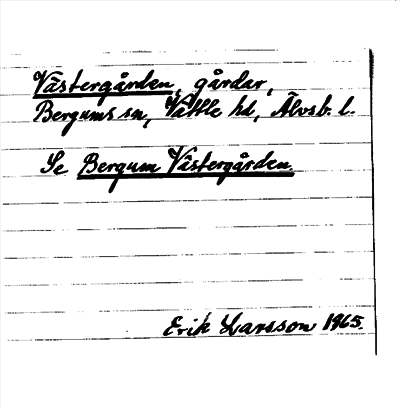 Västergården, gårdar,
Bergums sn, Vättle hd, Älvsb. l.
Se Bergum Västergården.
Erik Larsson 1965.